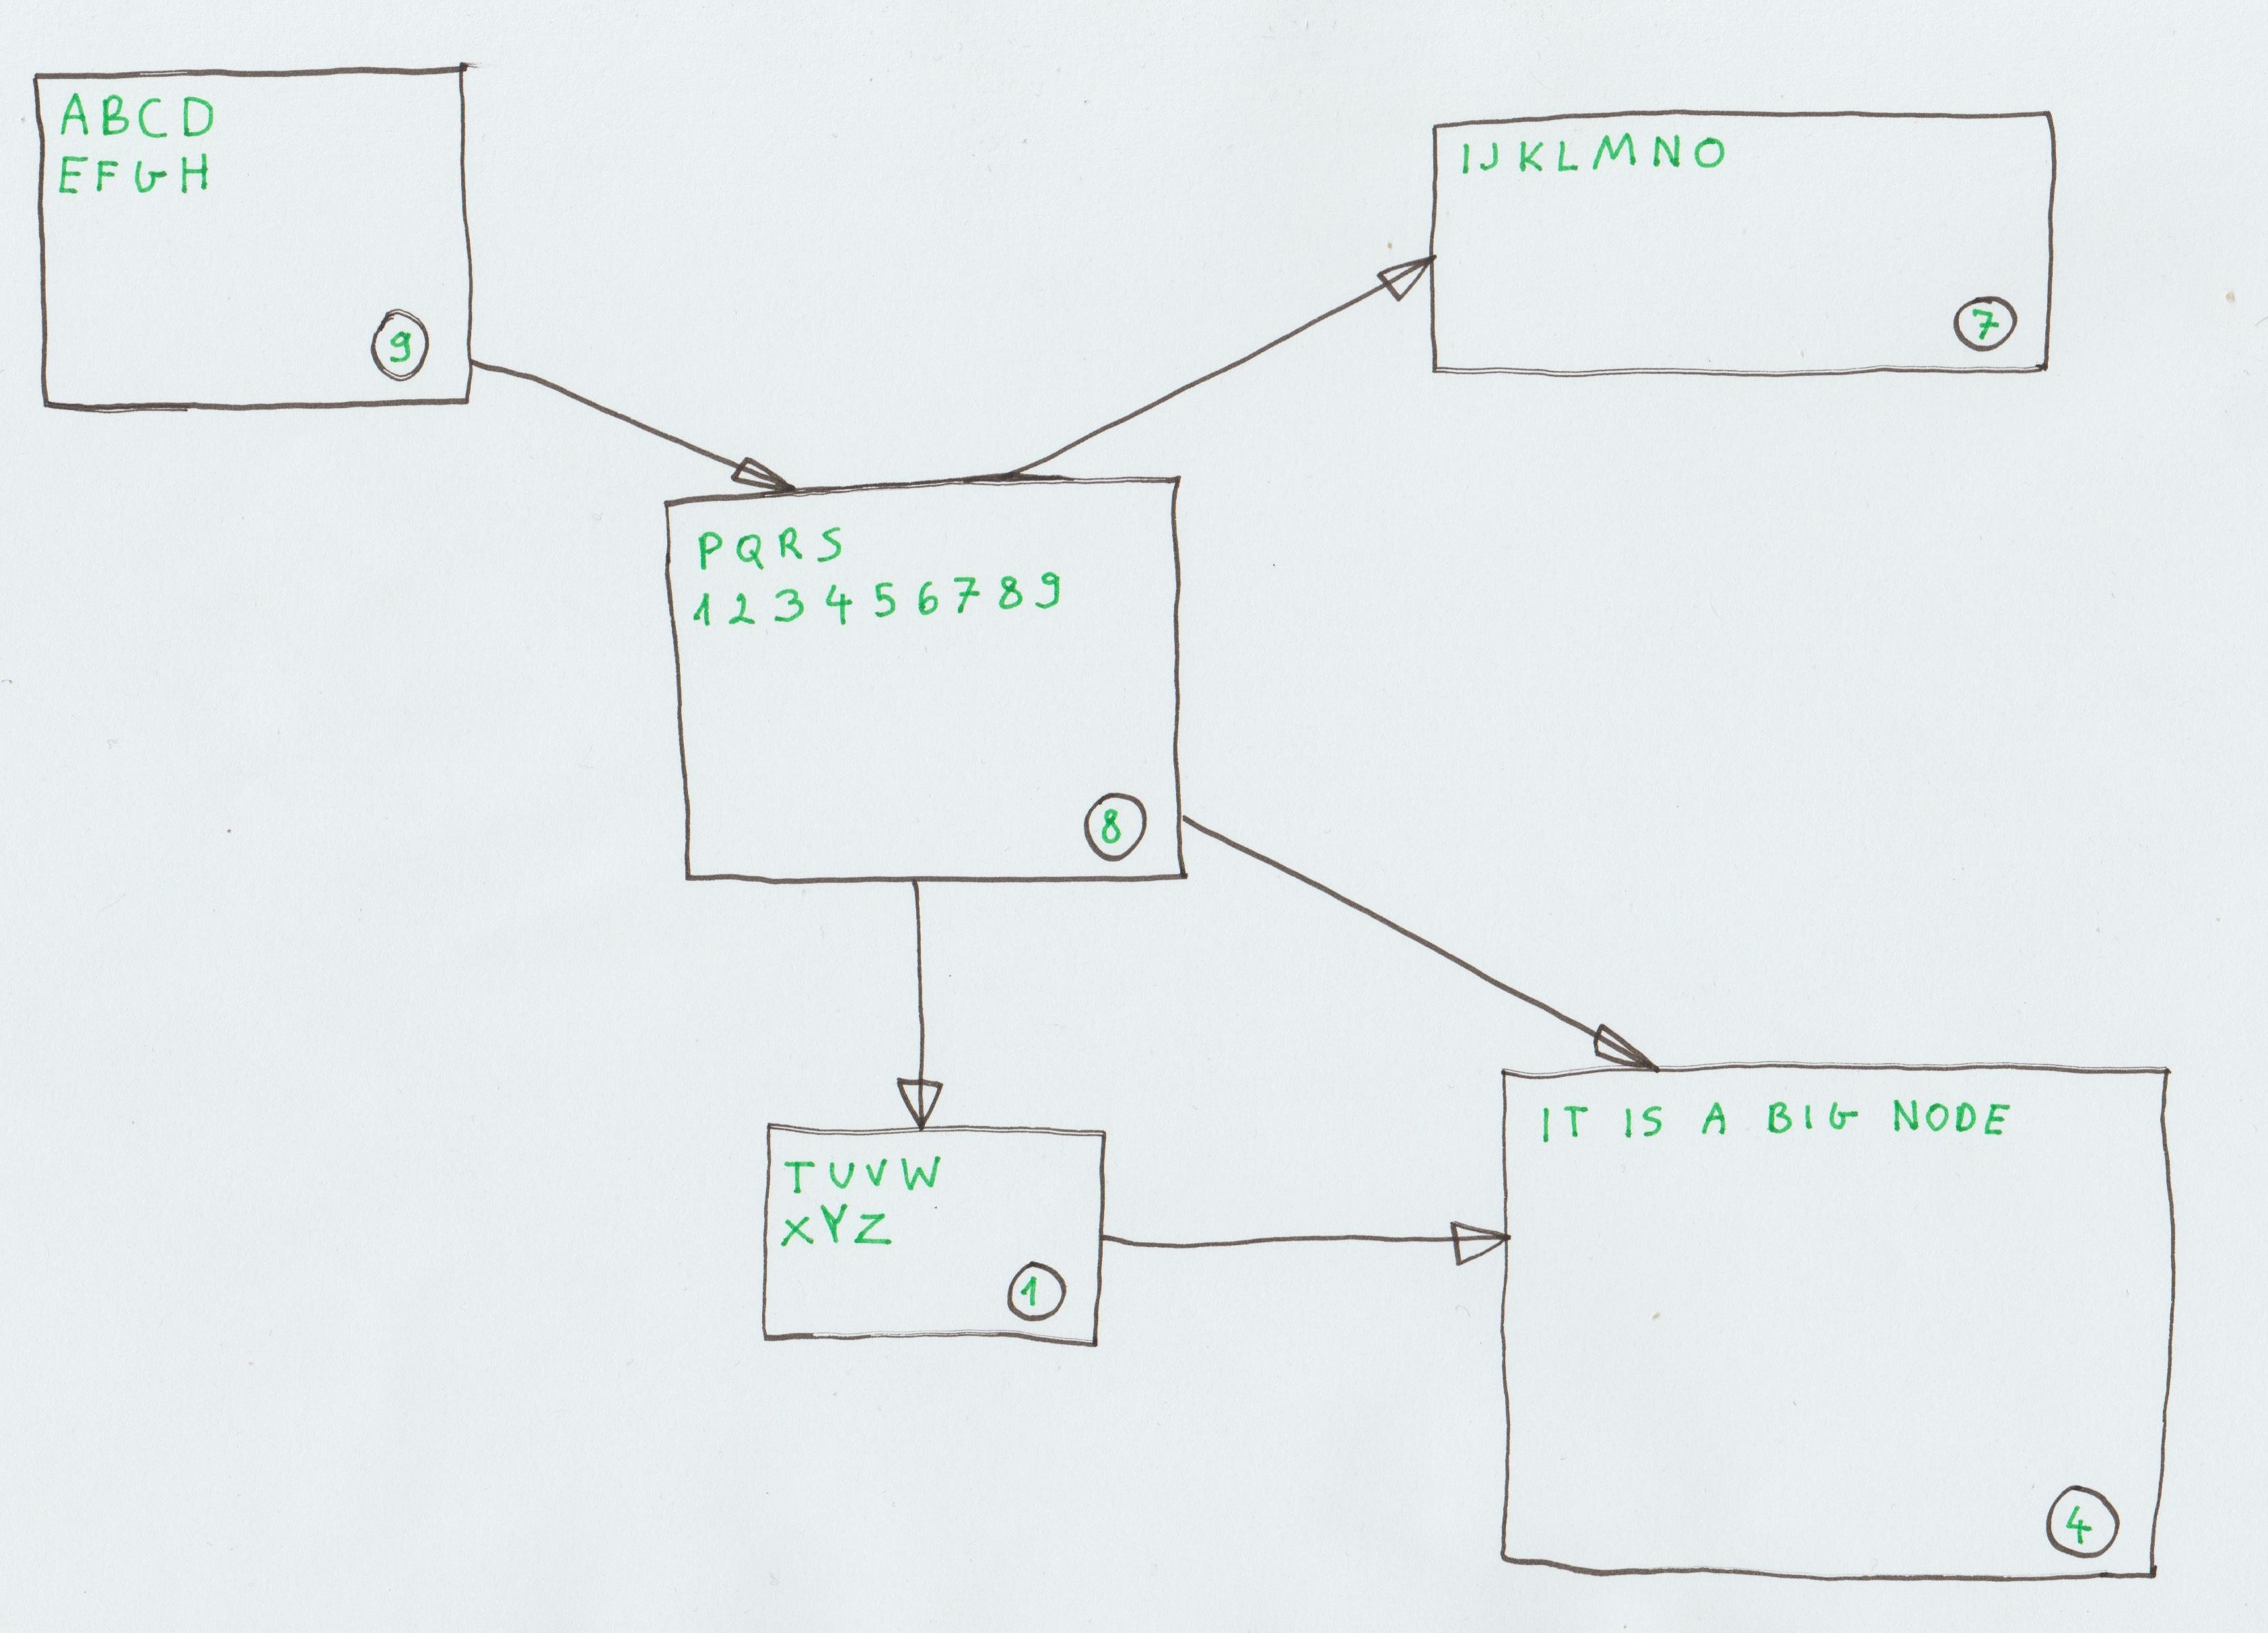 ABCD
EFGH
9
IJKLMNO
7
PQRS
123456789
8
TUVW
XYZ
1
IT IS A BIG NODE
4